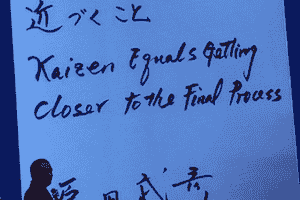 近づくこと
Kaizen Equals Getting
Closer to the Final Process